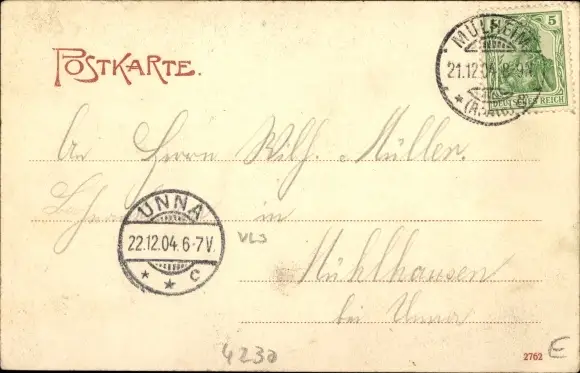 POSTKARTE.
MÜLHEIM
21.12.04
(RUHR)
5
DEUTSCHES REICH
An Herrn Wilh. Müller.
in
UNNA
22.12.04. 6-7V.
* * c
VLS
Mühlhausen
bei Unna
4230
2762
E